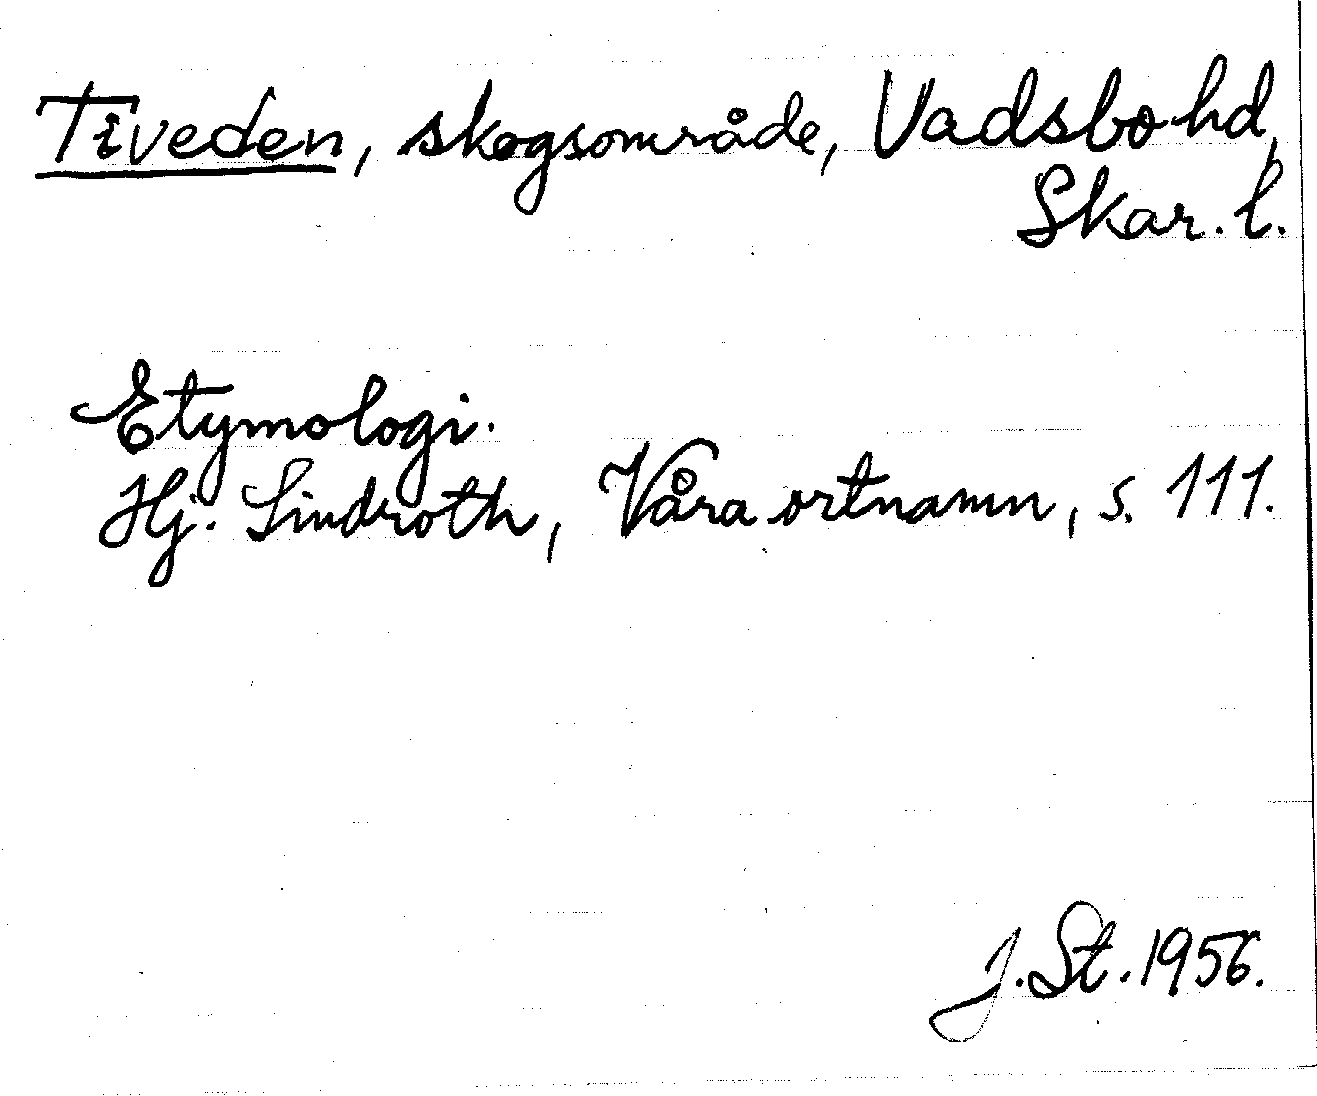 Tiveden, skogsområde, Vadsbo hd,
Skar. l.
Etymologi.
Hj. Lindroth, Våra ortnamn, s. 111.
J. St. 1956.